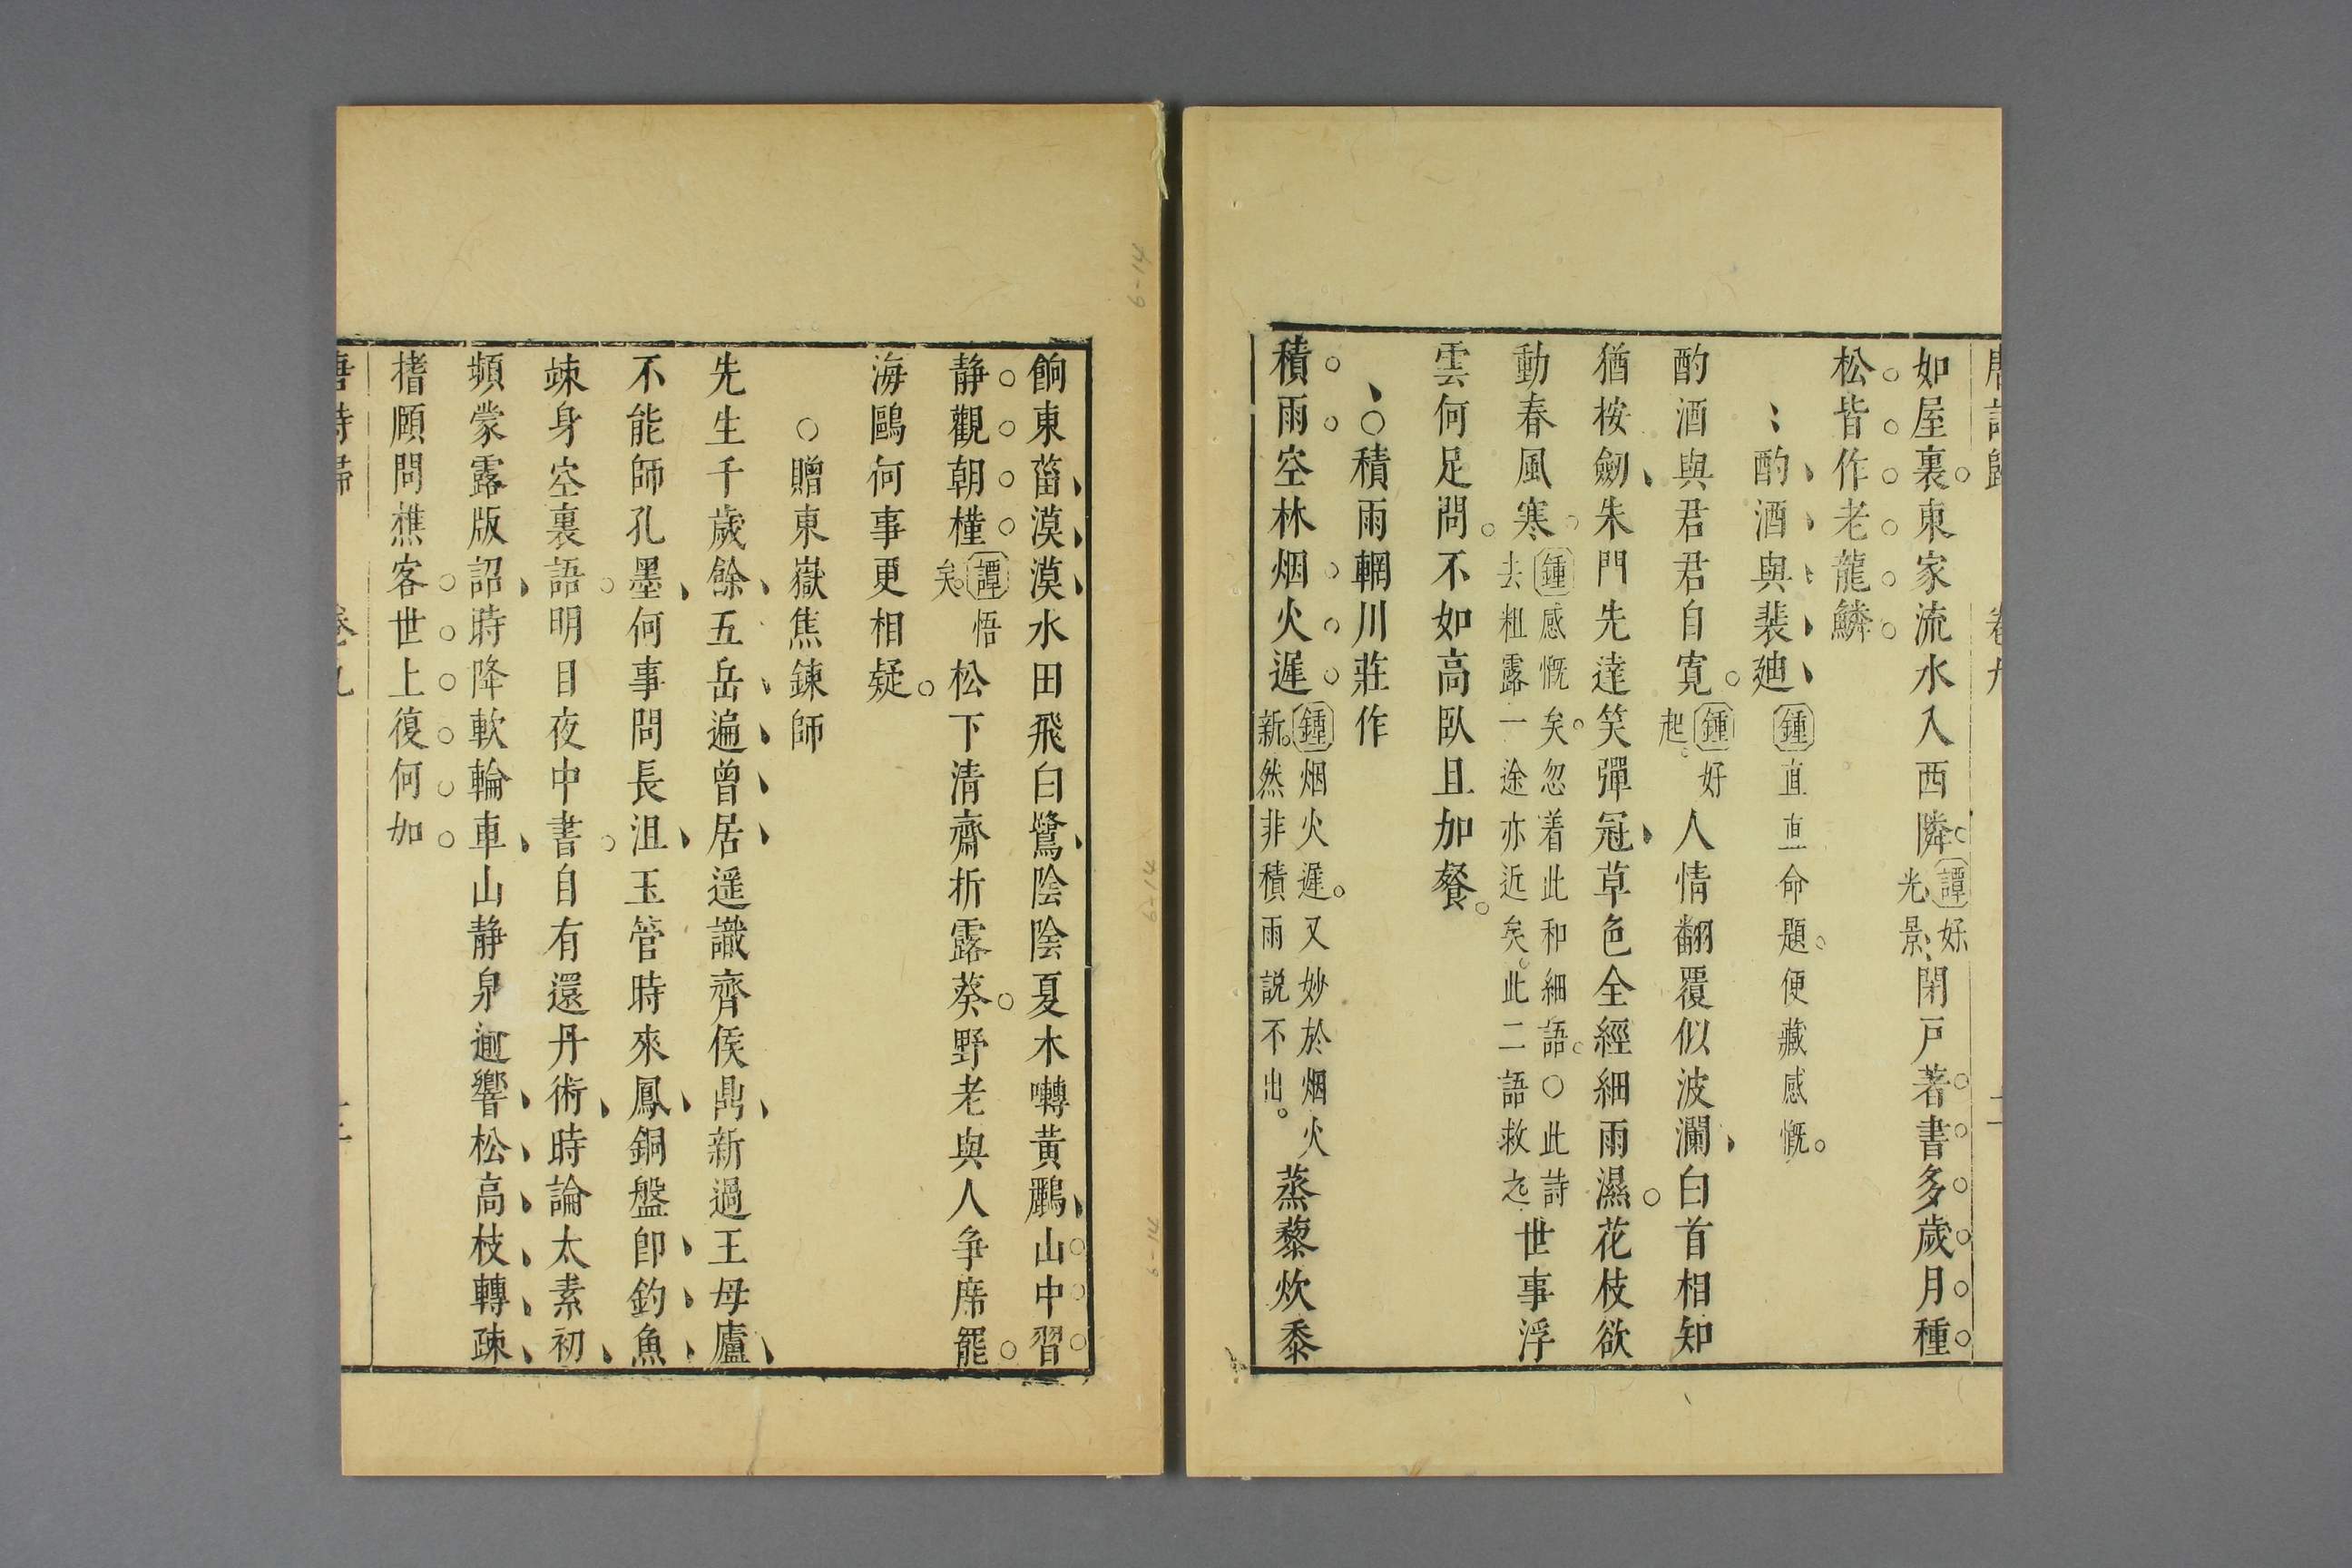 如屋裏東家流水入西隣譚好光景閉戸著書多歲月種
松皆作老龍鱗
酌酒與裴廸鍾直直命題便藏感慨
酌酒與君君自寬鍾好起人情翻覆似波瀾白首相知
猶按劒朱門先達笑彈冠草色全經細雨濕花枝欲
動春風寒鍾感慨矣忽着此和細語○此詩去粗露一途亦近矣此二語救之世事浮
雲何足問不如高臥且加餐
○積雨輞川莊作
積雨空林烟火遲鍾烟火遲又妙於烟火新然非積雨説不出蒸藜炊黍
餉東菑漠漠水田飛白鷺陰陰夏木囀黃鸝山中習
静觀朝槿譚悟矣松下清齋折露葵野老與人争席罷
海鷗何事更相疑
○贈東嶽焦鍊師
先生千歲餘五岳遍曾居遥識齊侯鼎新過王母廬
不能師孔墨何事問長沮玉管時來鳳銅盤卽釣魚
竦身空裏語明目夜中書自有還丹術時論太素初
頻蒙露版詔時降軟輪車山静泉逾響松高枝轉疎
搘頤問樵客世上復何如
唐詩歸 卷九